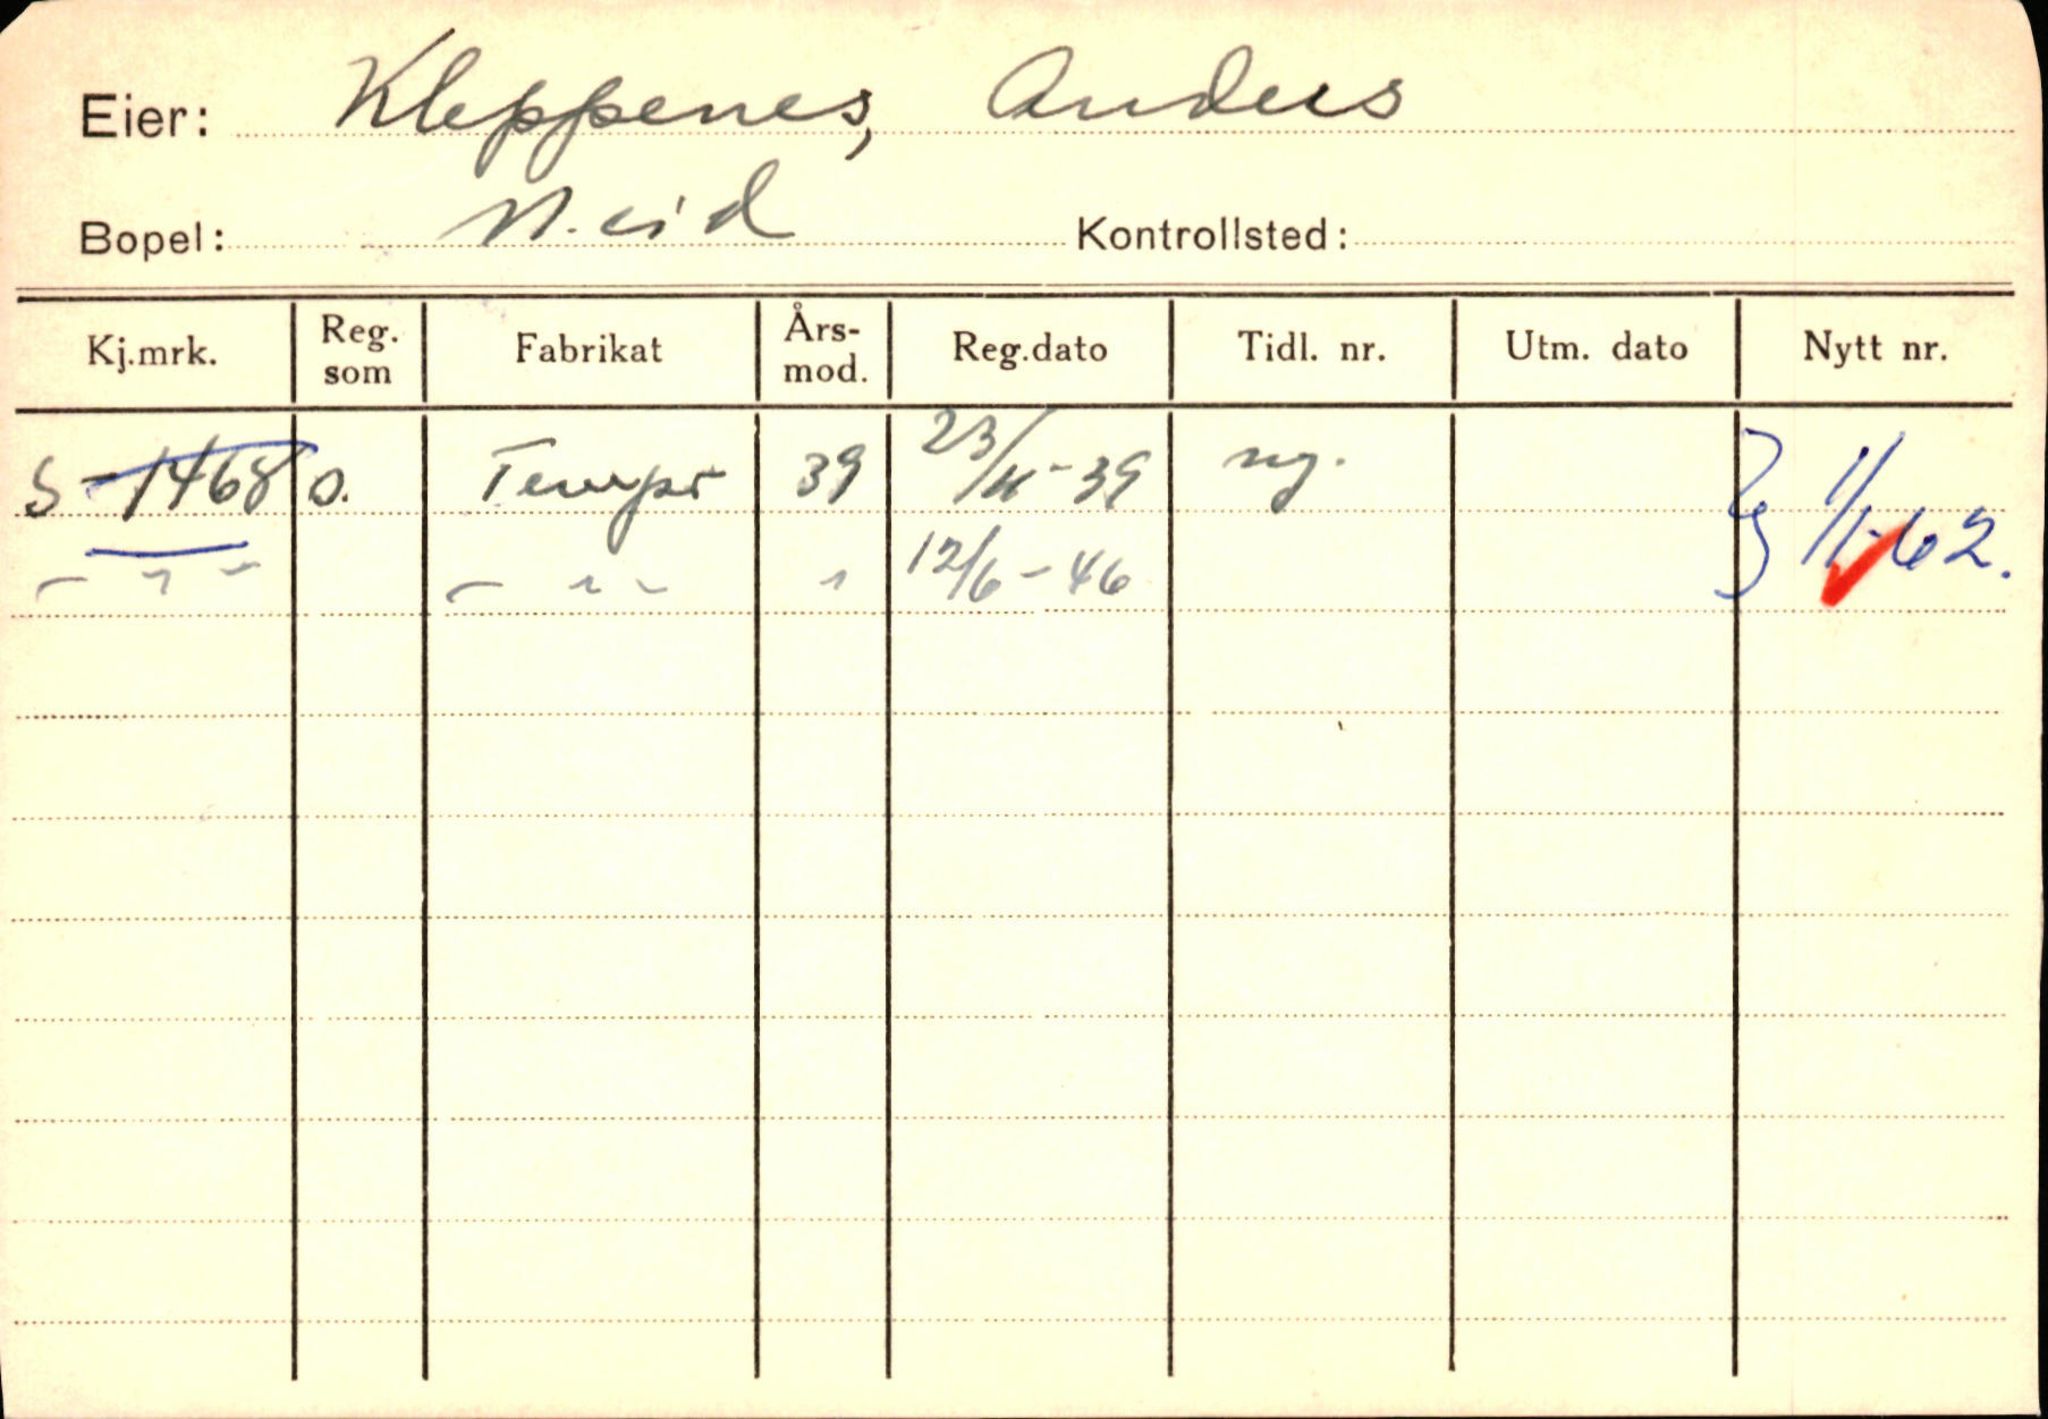 Eier: Kleppenes, Anders
Bopel: N. eid Kontrollsted:
Kj.mrk. Reg. som Fabrikat Års-mod. Reg.dato Tidl. nr. Utm. dato Nytt nr.
S-1468 O. Tempo 39 23/11-39 ny. 1/1-62.
- " - - " - " 12/6-46